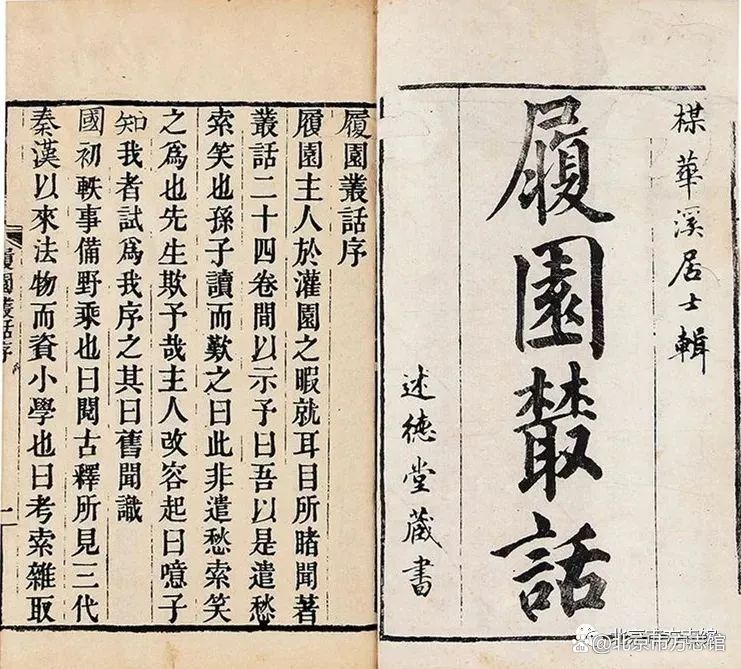 楳華溪居士輯
履園叢話
述德堂藏書
履園叢話序
履園主人於灌園之暇就耳目所睹聞著
叢話二十四卷間以示予曰吾以是遣愁
索笑也孫子讀而歎之曰此非遣愁索笑
之爲也先生欺予哉主人改容起曰噫子
知我者試爲我序之其曰舊聞識
國初軼事備野乘也曰閱古釋所見三代
秦漢以來法物而資小學也曰考索雜取
履園叢話序
一
北京市方志馆
@北京市方志馆